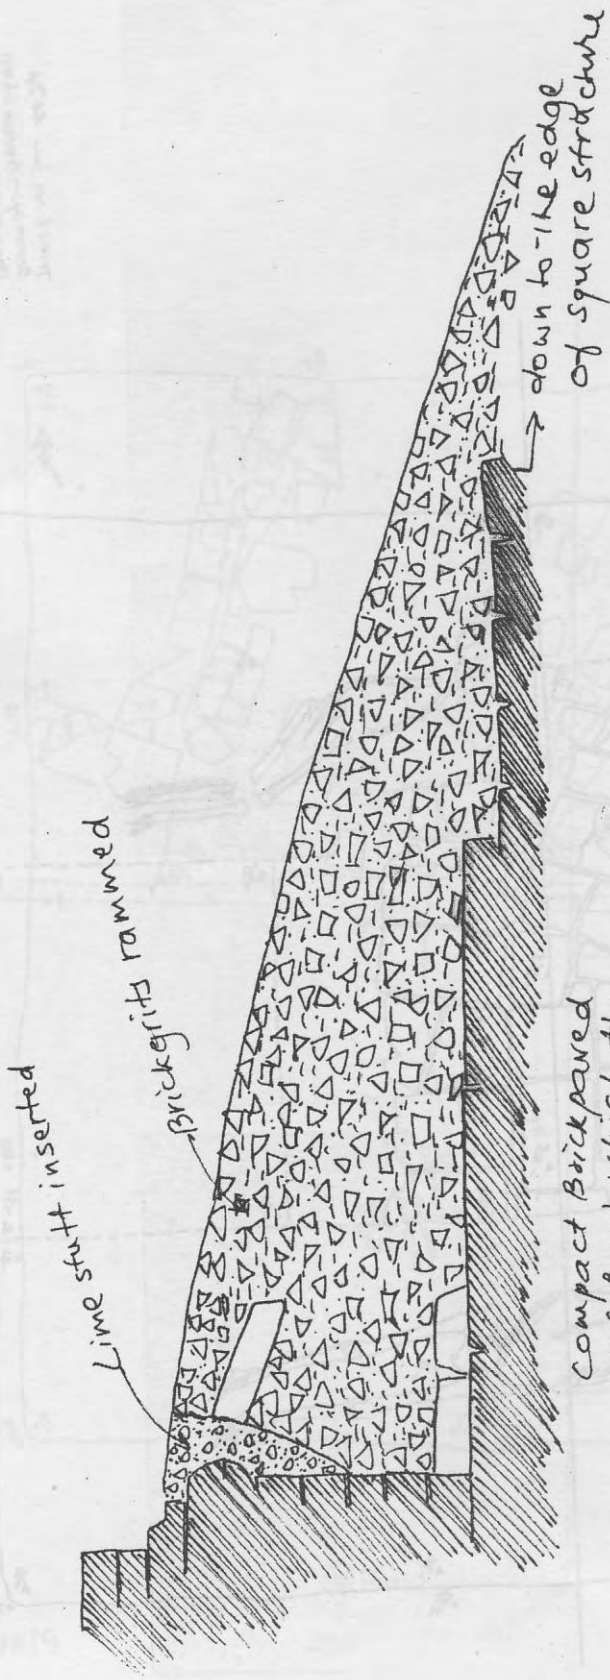 Lime stuff inserted
Brickgrits rammed
down to the edge
of square structure
compact Brick paved